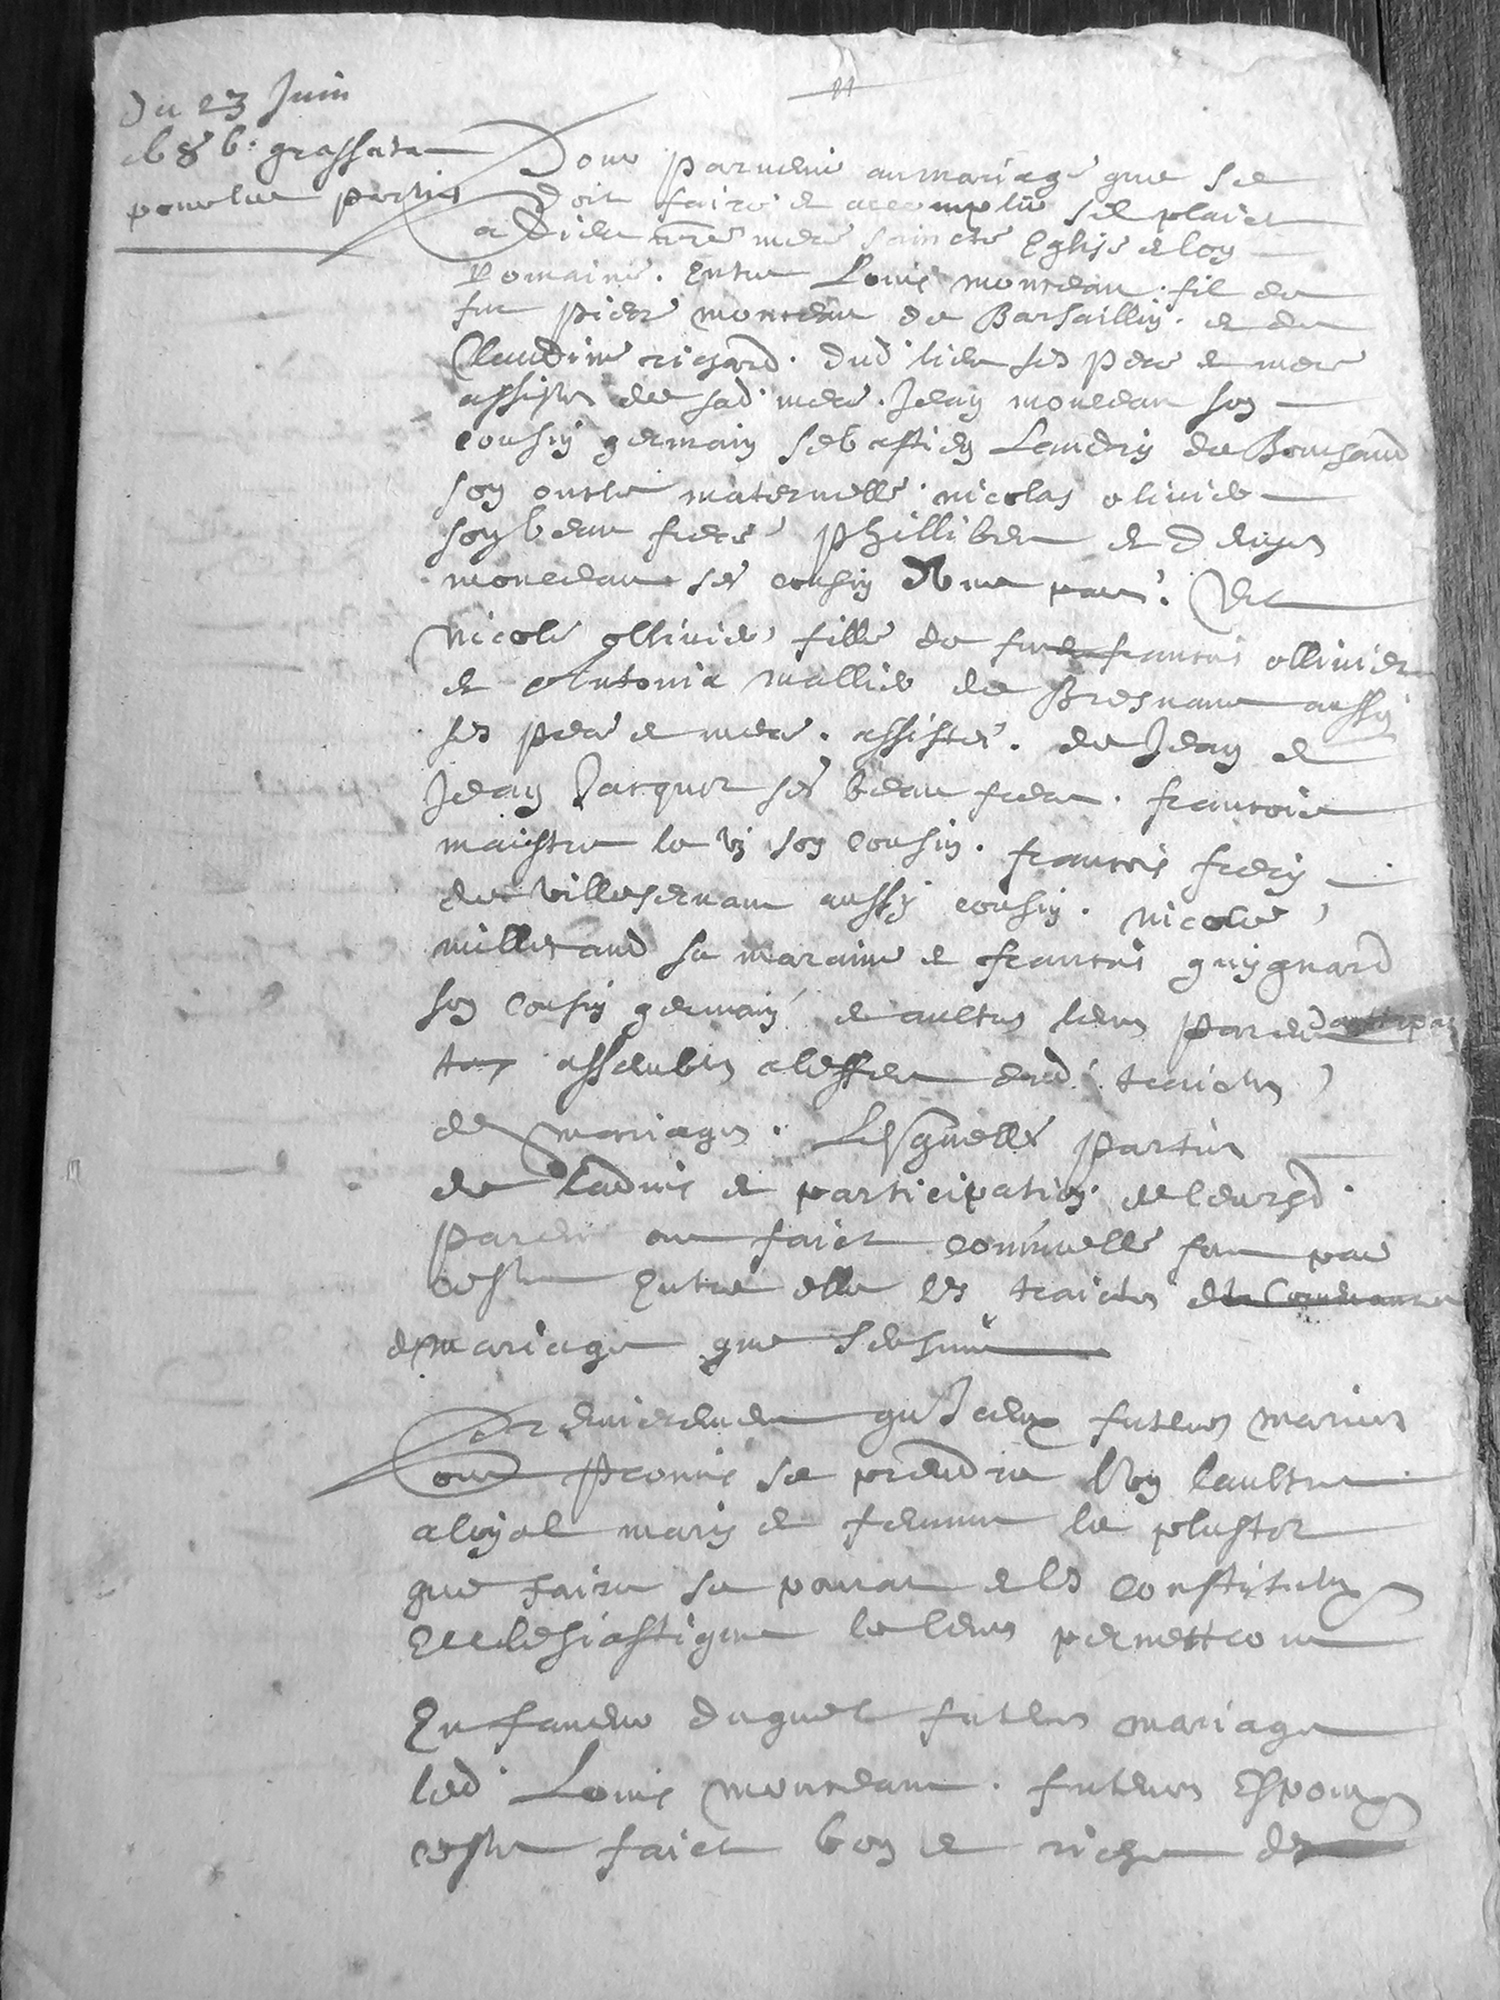 Du 23 Juin
grassata
pour les parties
Pour parvenir au mariage que se
doit faire et accomplir sil plaict
a Dieu nre mere saincte Eglise et loy
Romaine. Entre Louis monceau fil de
fut pierre monceau de Barsaillin. et de
Claudine rigard. dud lieu ses pere et mere
assistes de sad mere. Jean monceau son
cousin germain sebastien Landry de Bouchaud
son oncle maternelle nicolas olivier
son beau frere phillibert et Denys
monceau ses cousin d'Une part. Et
Nicole ollivier fille de fut francois ollivier
et Antonia mallier de Bresnant aussy
ses pere et mere. assistes. de Jean et
Jean Jacquot ses beau frere. francois
maistre le vi son cousin. francois frery
de villesernant aussy cousin. Nicole
millerand sa maraine et francois guygnard
son cousin germain et aultres leurs parens daultre part
tous assembles a leffect desd traictes
de mariages. Lesquelles parties
de ladvis et participation de leursd
parens ont faict comme elle font par
ceste Entre elle les traictes
de mariage que sensuit
Premierement qu'Iceux futeurs maries
ont promis se prendre l'Un laultre
a loyal mary et femme le plustot
que faire se pourat et les constitutes
Ecclesiastique le leurs permettront
En faveur duquel futeur mariage
led Louis monceau. futeur Espoux
cest faict bon et riche de